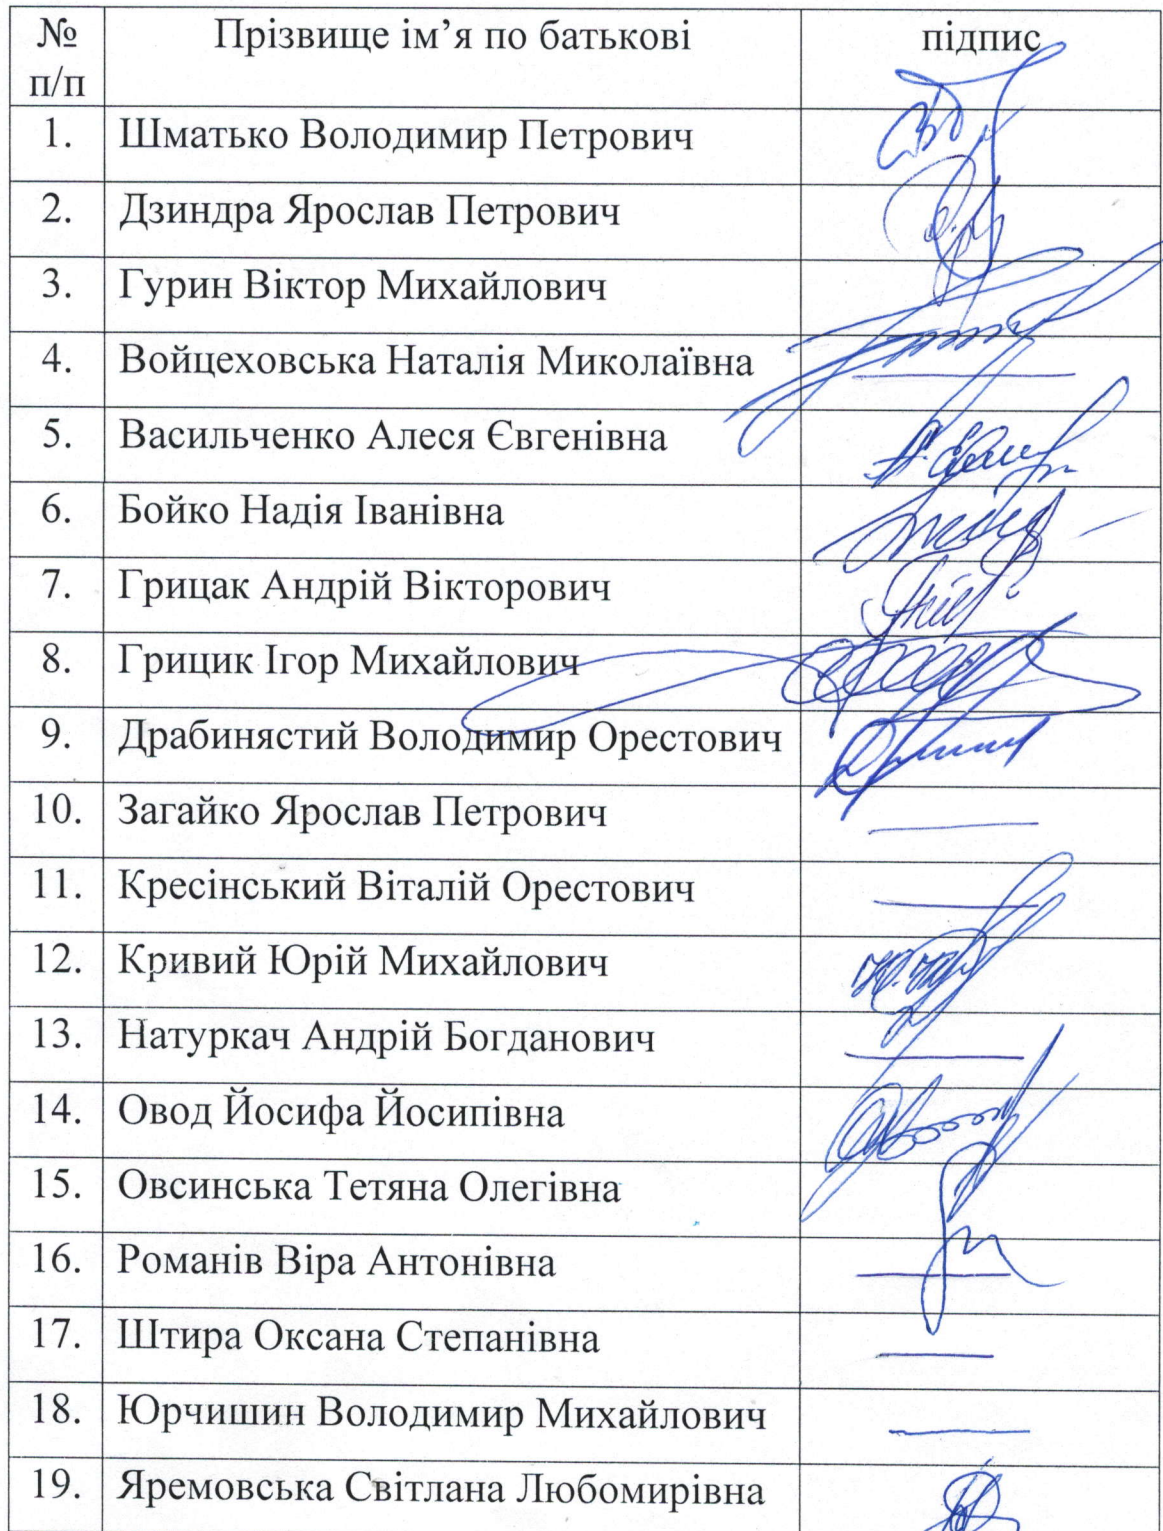 № Прізвище ім’я по батькові підпис
п/п
1. Шматько Володимир Петрович
2. Дзиндра Ярослав Петрович
3. Гурин Віктор Михайлович
4. Войцеховська Наталія Миколаївна
5. Васильченко Алеся Євгенівна
6. Бойко Надія Іванівна
7. Грицак Андрій Вікторович
8. Грицик Ігор Михайлович
9. Драбинястий Володимир Орестович
10. Загайко Ярослав Петрович
11. Кресінський Віталій Орестович
12. Кривий Юрій Михайлович
13. Натуркач Андрій Богданович
14. Овод Йосифа Йосипівна
15. Овсинська Тетяна Олегівна
16. Романів Віра Антонівна
17. Штира Оксана Степанівна
18. Юрчишин Володимир Михайлович
19. Яремовська Світлана Любомирівна